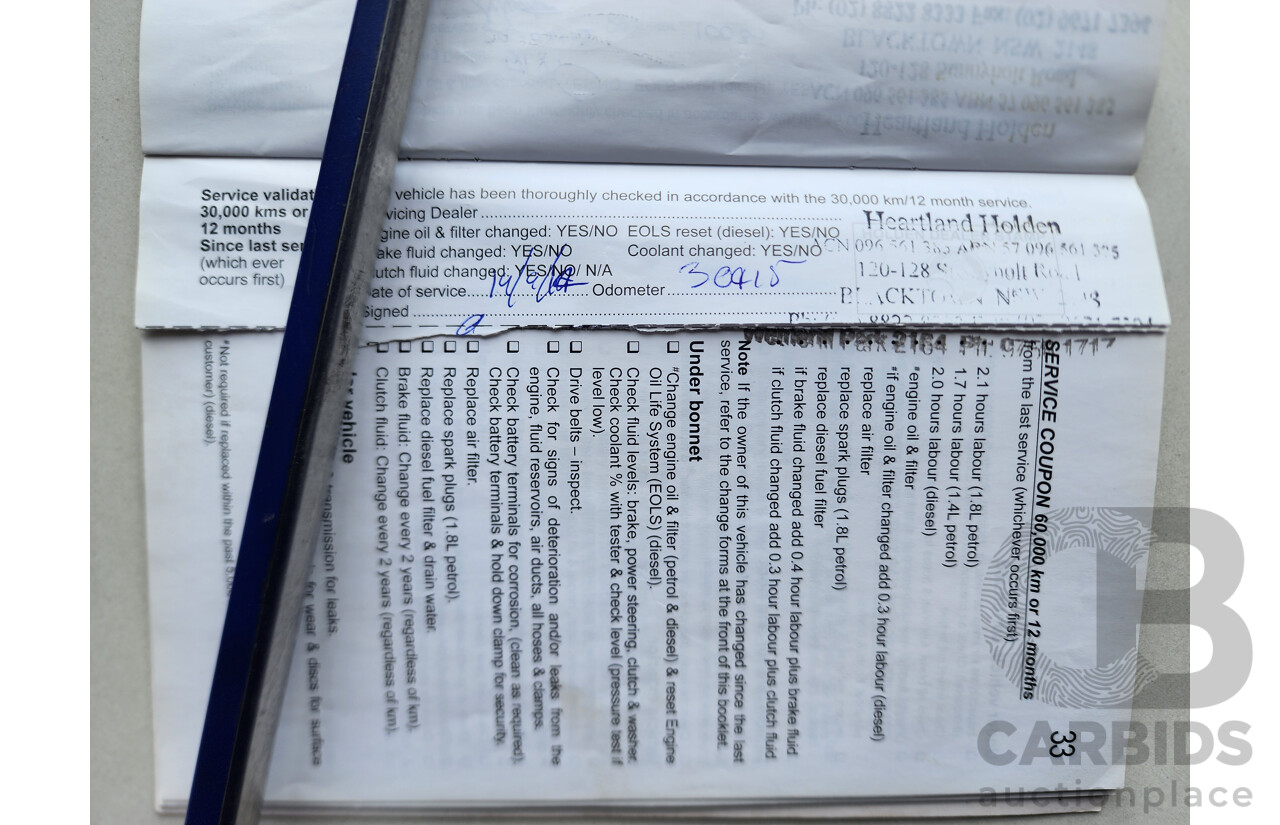 Ph: (02) 8822 8333 Fax: (02) 9671 7394
BLACKTOWN NSW 2148
120-128 Sunnyholt Road
Heartland Holden
Service validat
30,000 kms or
12 months
Since last ser
(which ever
occurs first)
vehicle has been thoroughly checked in accordance with the 30,000 km/12 month service.
vicing Dealer
gine oil & filter changed: YES/NO EOLS reset (diesel): YES/NO
ake fluid changed: YES/NO Coolant changed: YES/NO
utch fluid changed: YES/NO/ N/A
ate of service Odometer 30415
Signed
Heartland Holden
120-128 S
SERVICE COUPON 60,000 km or 12 months
from the last service (whichever occurs first)
33
2.1 hours labour (1.8L petrol)
1.7 hours labour (1.4L petrol)
2.0 hours labour (diesel)
*engine oil & filter
*if engine oil & filter changed add 0.3 hour labour (diesel)
replace air filter
replace spark plugs (1.8L petrol)
replace diesel fuel filter
if brake fluid changed add 0.4 hour labour plus brake fluid
if clutch fluid changed add 0.3 hour labour plus clutch fluid
Note If the owner of this vehicle has changed since the last
service, refer to the change forms at the front of this booklet.
Under bonnet
*Change engine oil & filter (petrol & diesel) & reset Engine
Oil Life System (EOLS) (diesel).
Check fluid levels: brake, power steering, clutch & washer.
Check coolant % with tester & check level (pressure test if
level low).
Drive belts – inspect.
Check for signs of deterioration and/or leaks from the
engine, fluid reservoirs, air ducts, all hoses & clamps.
Check battery terminals for corrosion, (clean as required).
Check battery terminals & hold down clamp for security.
Replace air filter.
Replace spark plugs (1.8L petrol).
Replace diesel fuel filter & drain water.
Brake fluid: Change every 2 years (regardless of km).
Clutch fluid: Change every 2 years (regardless of km).
vehicle
transmission for leaks.
for wear & discs for surface
*Not required if replaced within the past 5,000
customer) (diesel).
CARBIDS
auctionplace